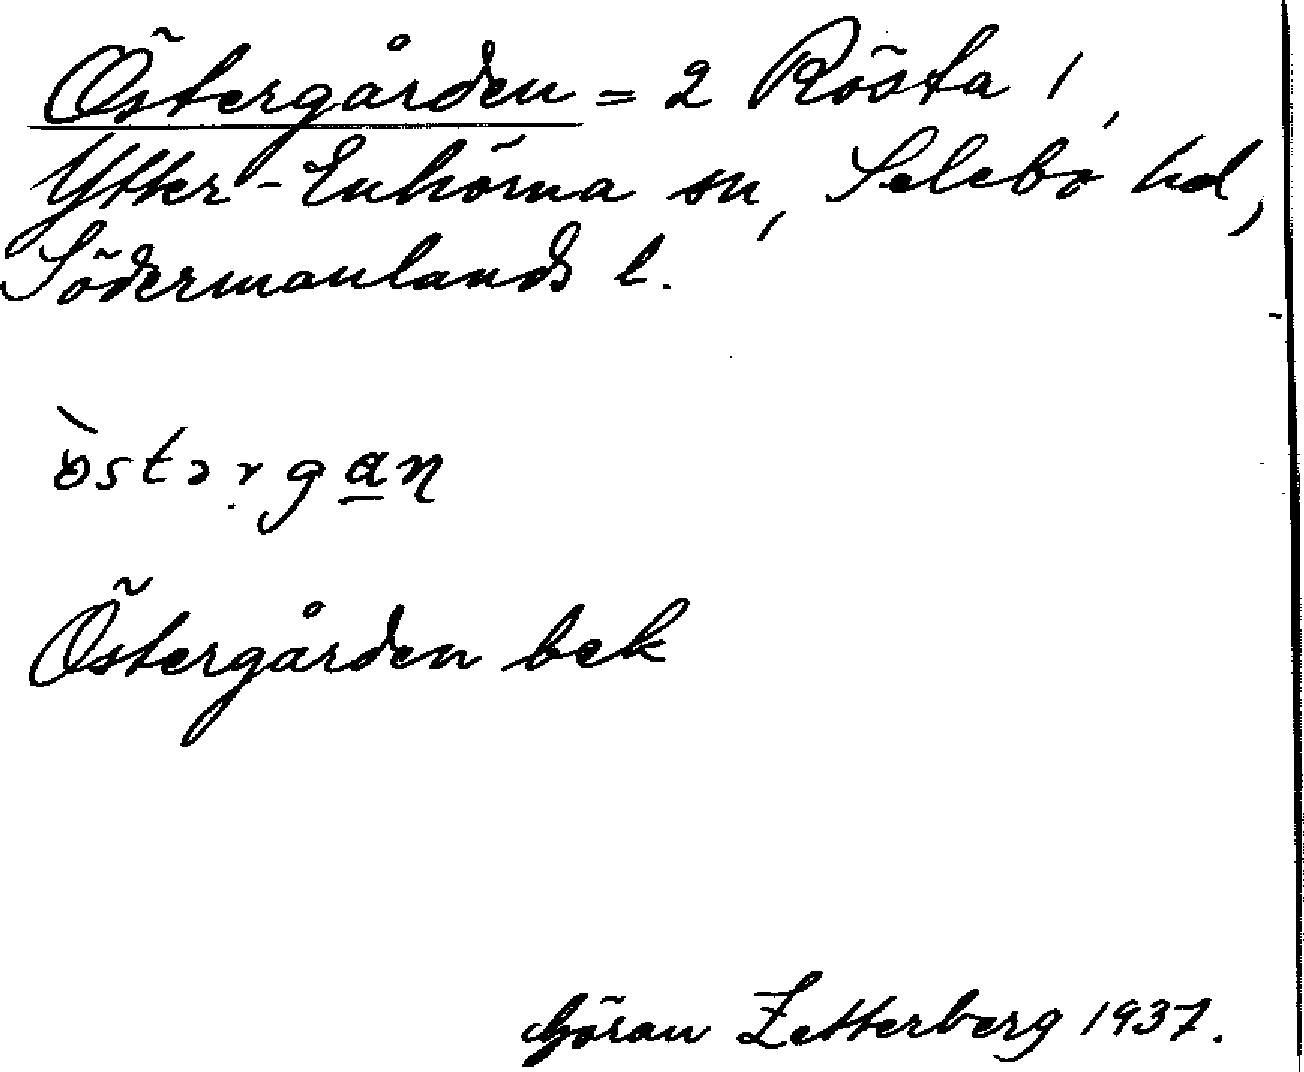 Östergården = 2 Rösta 1
Ytter-Enhörna sn, Selebo hd,
Södermanlands l.
Östergården bek
Göran Zetterberg 1937.